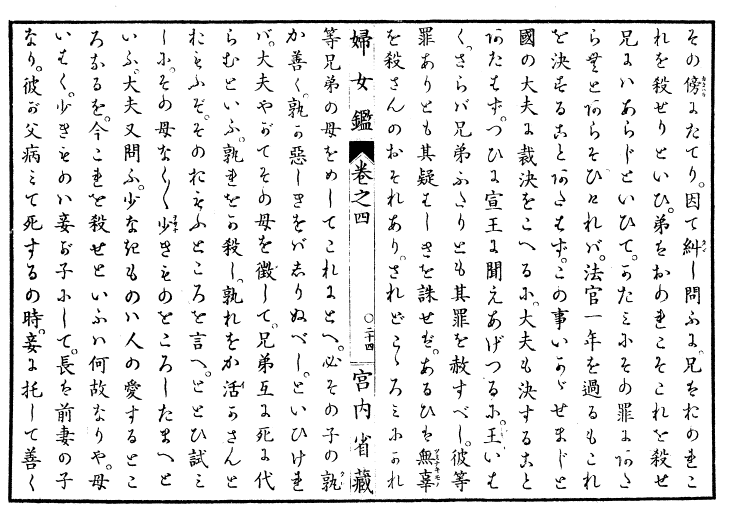 その傍にたてり。因て糾し問ふに。兄はおのれこ
れを殺せりといひ。弟はおのれこそこれを殺せ
兄にハあらじといひて。かたミにその罪にあた
らむとあらそひければ。法官一年を過るもこれ
を決することあたはず。この事いかゞせましと
國の大夫に裁決をこへるに。大夫も決すること
あたはず。つひに宣王に聞えあげつるに。王いは
く。さらば兄弟ふたりとも其罪を赦すべし。彼等
罪ありとも其疑はしきを誅せば。あるひは無辜
を殺さんのおそれあり。されどこゝろミにかれ
婦女鑑 巻之四 ○二十四 宮内省藏
等兄弟の母をめしてこれにとへ。必その子の孰
か善く。孰か惡しきをばしりぬべし。といひけれ
ば。大夫やがてその母を徴して。兄弟互に死に代
らむといふ。孰れをか殺し。孰れをか活かさんと
おもふぞ。そのおもふところを言へ。ととひ試ミ
しに。その母なく〳〵少きものをころしたまへと
いふ。大夫又問ふ。少なきものハ人の愛するとこ
ろなるを。今これを殺せといふハ何故なりや。母
いはく。少きものハ妾が子にして。長は前妻の子
なり。彼が父病ミて死するの時。妾に托して善く